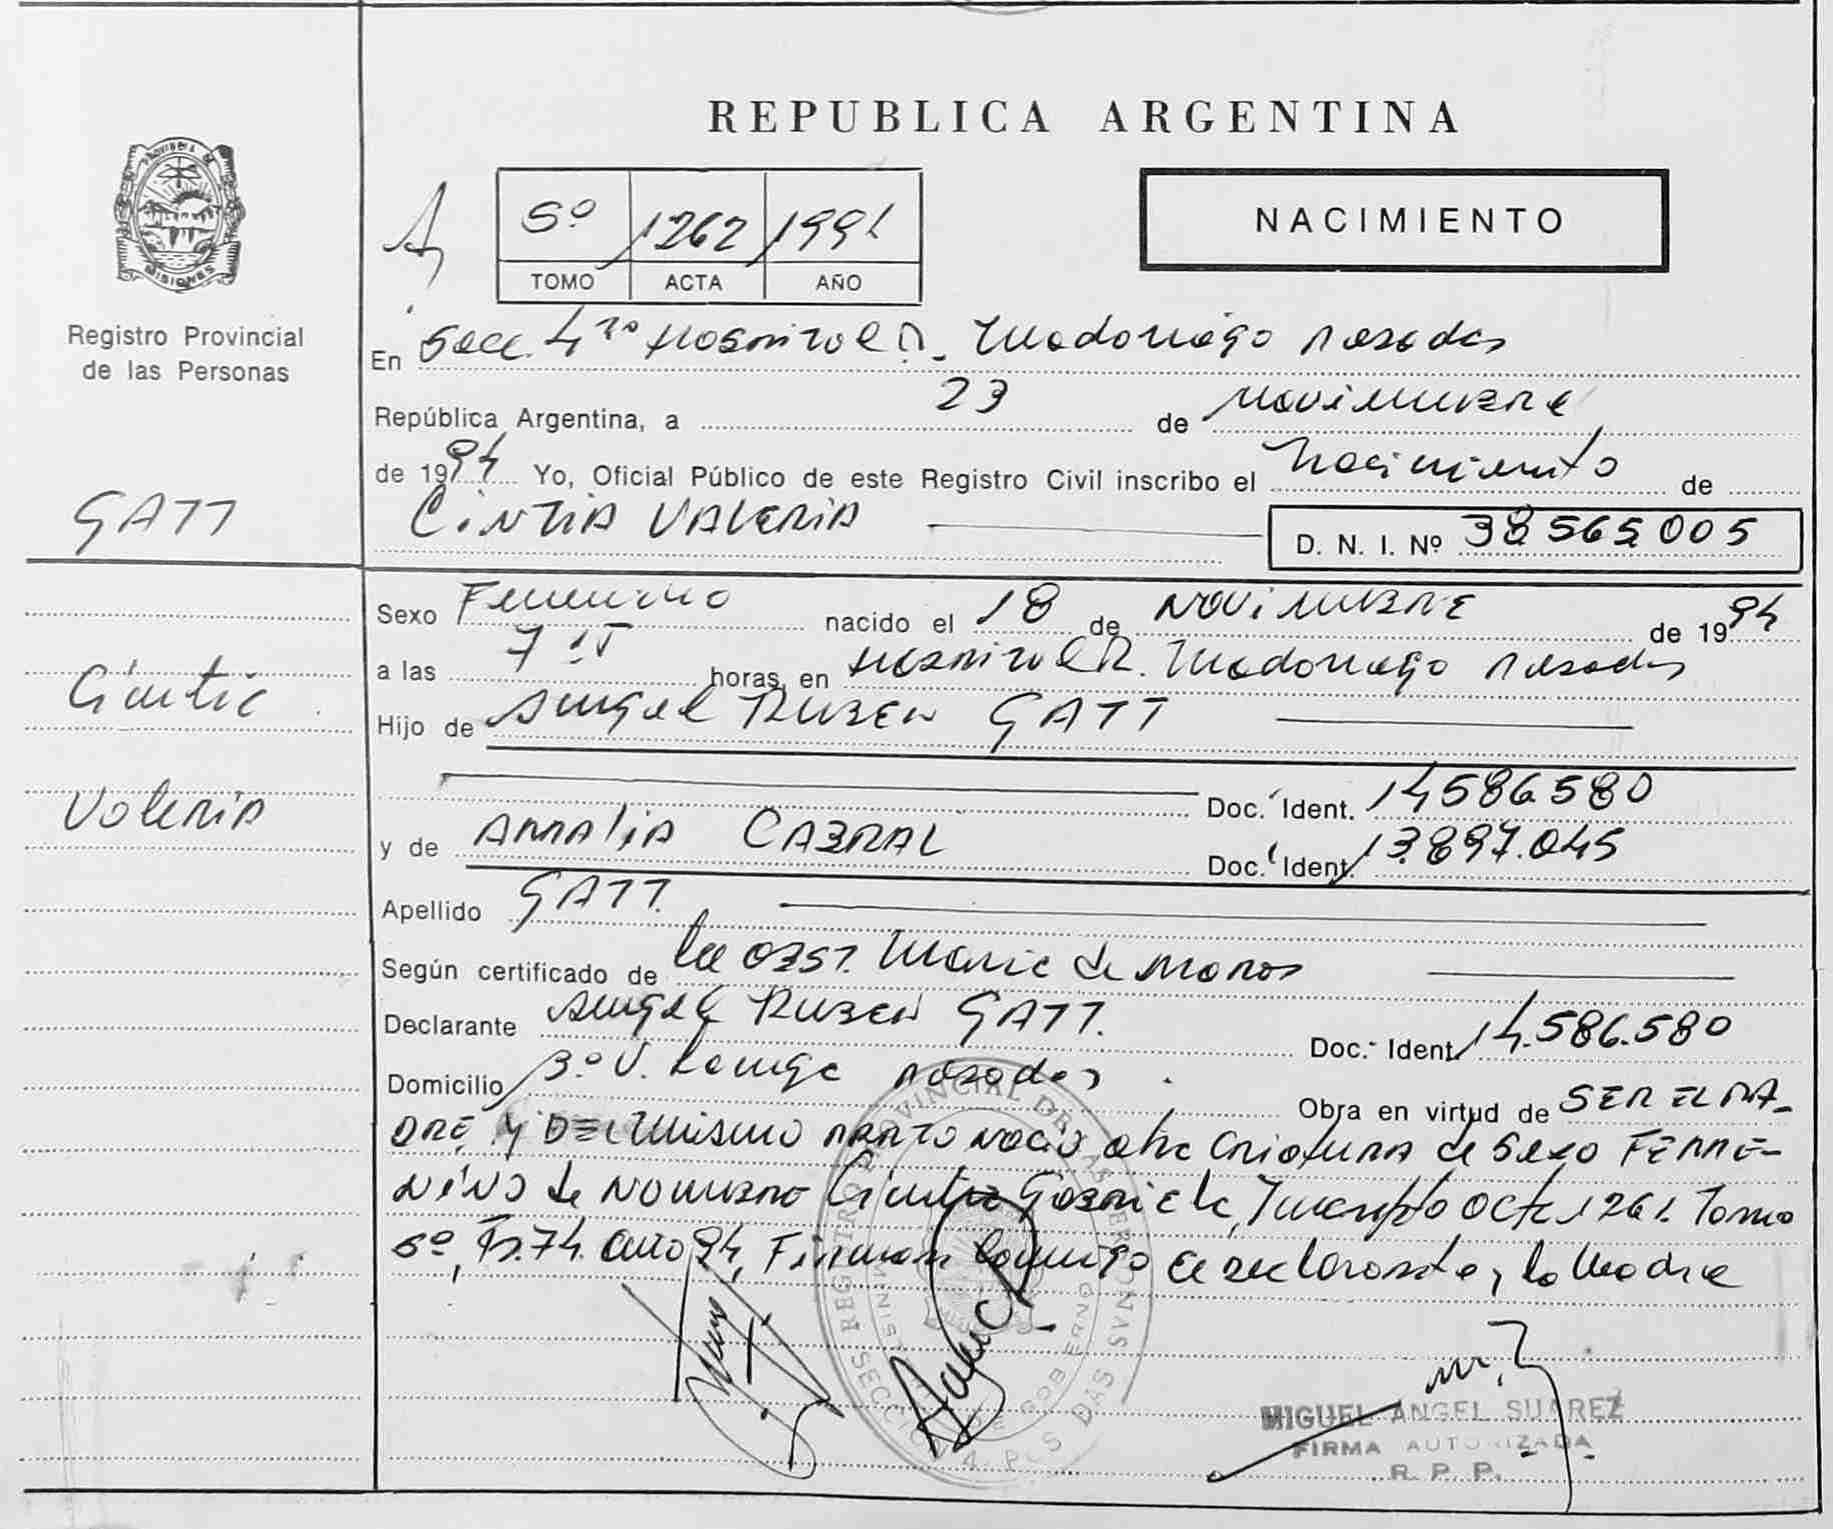 REPUBLICA ARGENTINA
PROVINCIA DE
MISIONES
5º 1262 1994
TOMO ACTA AÑO
NACIMIENTO
Registro Provincial
de las Personas
En Secc. 4ta Hospital R. Madariaga Posadas
República Argentina, a 23 de Noviembre
de 1994 Yo, Oficial Público de este Registro Civil inscribo el Nacimiento de
GATT
CINTIA VALERIA
D. N. I. Nº 38 565 005
Sexo Femenino nacido el 18 de NOVIEMBRE de 1994
a las 7 horas, en Hospital R. Madariaga Posadas
Cintia
Hijo de Angel RUBEN GATT
Valeria
Doc. Ident. 14586580
y de AMALIA CABRAL Doc. Ident. 13.897.045
Apellido GATT
Según certificado de la OBST. Maria de
Declarante Angel RUBEN GATT. Doc. Ident. 14.586.580
Domicilio Posadas. Obra en virtud de SER EL PA-
DRE Y DEL Mismo PARTO NACIO otra CRIATURA de Sexo FEMME-
NINO de NOMBRE Cintia Gabriela, Inscripto Acta 1261. Tomo
5º, Fº.74. Año 94, Firman Conmigo el declarante y la Madre
REGISTRO PROVINCIAL DE LAS PERSONAS
SECCION 4 POSADAS
MIGUEL ANGEL SUAREZ
FIRMA AUTORIZADA
R. P. P.